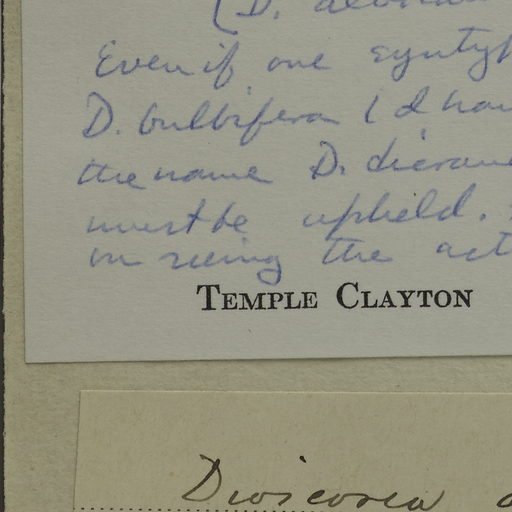 (D.
Even if one
D. bulbifera (I have
the name D.
must be upheld.
on seeing the
TEMPLE CLAYTON
Dioscorea